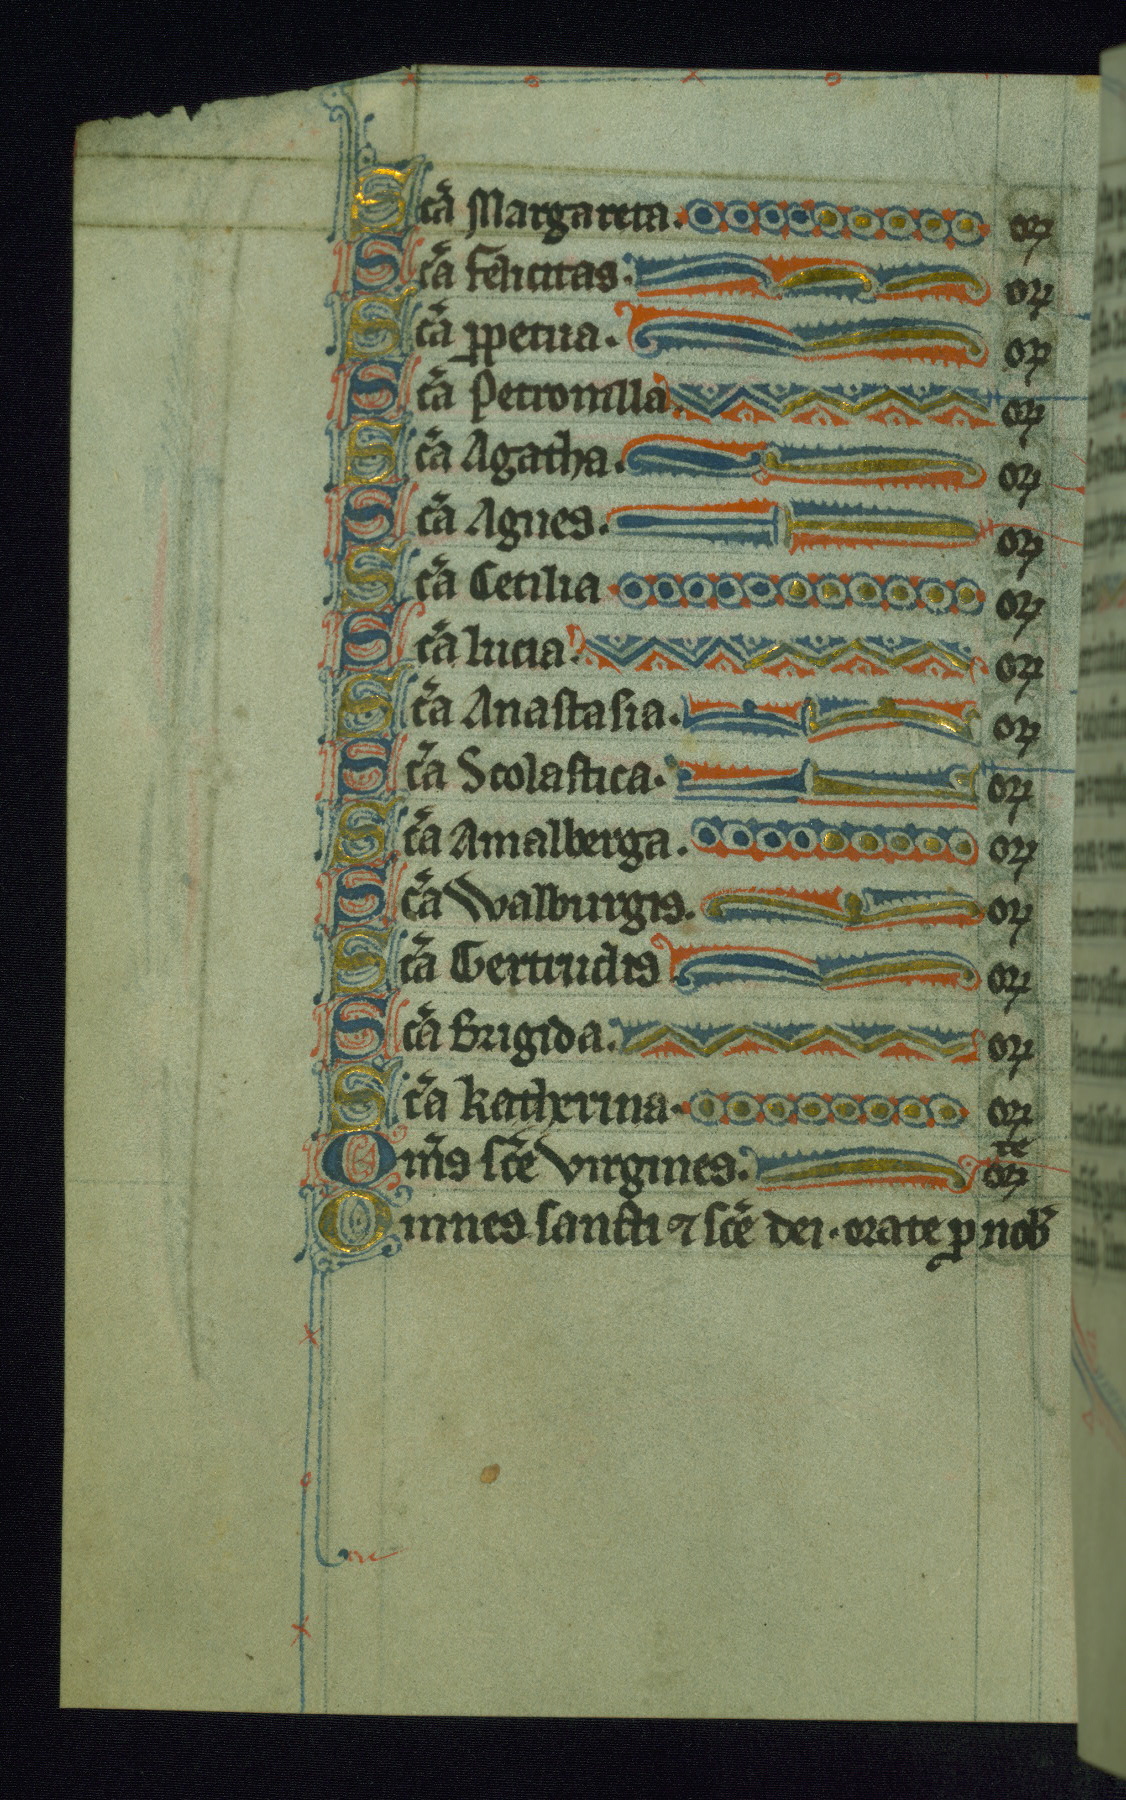 Scā Margareta. or
Scā felicitas. or
Scā ꝑpetua. or
Scā Petronilla. or
Scā Agatha. or
Scā Agnes. or
Scā Cecilia or
Scā lucia. or
Scā Anastasia. or
Scā Scolastica. or
Scā Amalberga. or
Scā Walburgis. or
Scā Gertrudis or
Scā Brigida. or
Scā katherina. or
Om̄s sc̄e virgines. orte
Omnes sancti ⁊ sc̄e dei. orate ꝓ nob̄